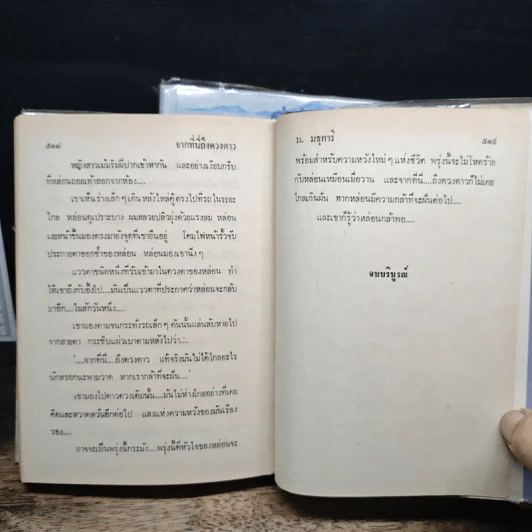 ๕๑๘ จากที่นี่ถึงดวงดาว
หญิงสาวเม้มริมฝีปากเข้าหากัน และอย่างเงียบกริบ
ที่หล่อนถอยเท้าออกจากห้อง....
เขาเห็นร่างเล็กๆ เดิน หลังไหล่คู้ตรงไปที่รถในระยะ
ไกล หล่อนดูเปราะบาง ผมสลวยปลิวยุ่งด้วยแรงลม หล่อน
เงยหน้าขึ้นมองตรงมายังจุดที่เขายืนอยู่ โคมไฟหน้ารั้วจับ
ประกายตาของหล่อน หล่อนมองเขานิ่งๆ
แววตาชนิดหนึ่งที่วับเข้ามาในดวงตาของหล่อน ทำ
ให้เขาถึงกับอึ้งไป....มันเป็นแววตาที่ประกาศว่าหล่อนจะกลับ
มาอีก....ในสักวันหนึ่ง....
เขามองตามจนกระทั่งรถเล็กๆ คันนั้นแล่นลับหายไป
จากสายตา กระซิบแผ่วเบาตามหลังไปว่า....
'....จากที่นี่....ถึงดวงดาว แท้จริงมันไม่ได้ไกลอะไร
นักหรอกนะพามวาด หากเรากล้าที่จะฝัน....'
เขามองไปดาวดวงเดิมนั้น....มันไม่ห่างไกลอย่างที่เคย
คิดและหวาดหวั่นอีกต่อไป แสงแห่งความหวังของมันเรือง
รอง....
อาจจะเป็นพรุ่งนี้กระมัง....พรุ่งนี้ที่หัวใจของหล่อนจะ
ม. มธุการี ๕๑๙
พร้อมสำหรับความหวังใหม่ๆ แห่งชีวิต พรุ่งนี้จะไม่โหดร้าย
กับหล่อนเหมือนเมื่อวาน และจากที่นี่....ถึงดวงดาวก็ไม่เคย
ไกลเกินฝัน หากหล่อนมีความกล้าที่จะฝันต่อไป....
และเขาก็รู้ว่าหล่อนกล้าพอ....
จบบริบูรณ์